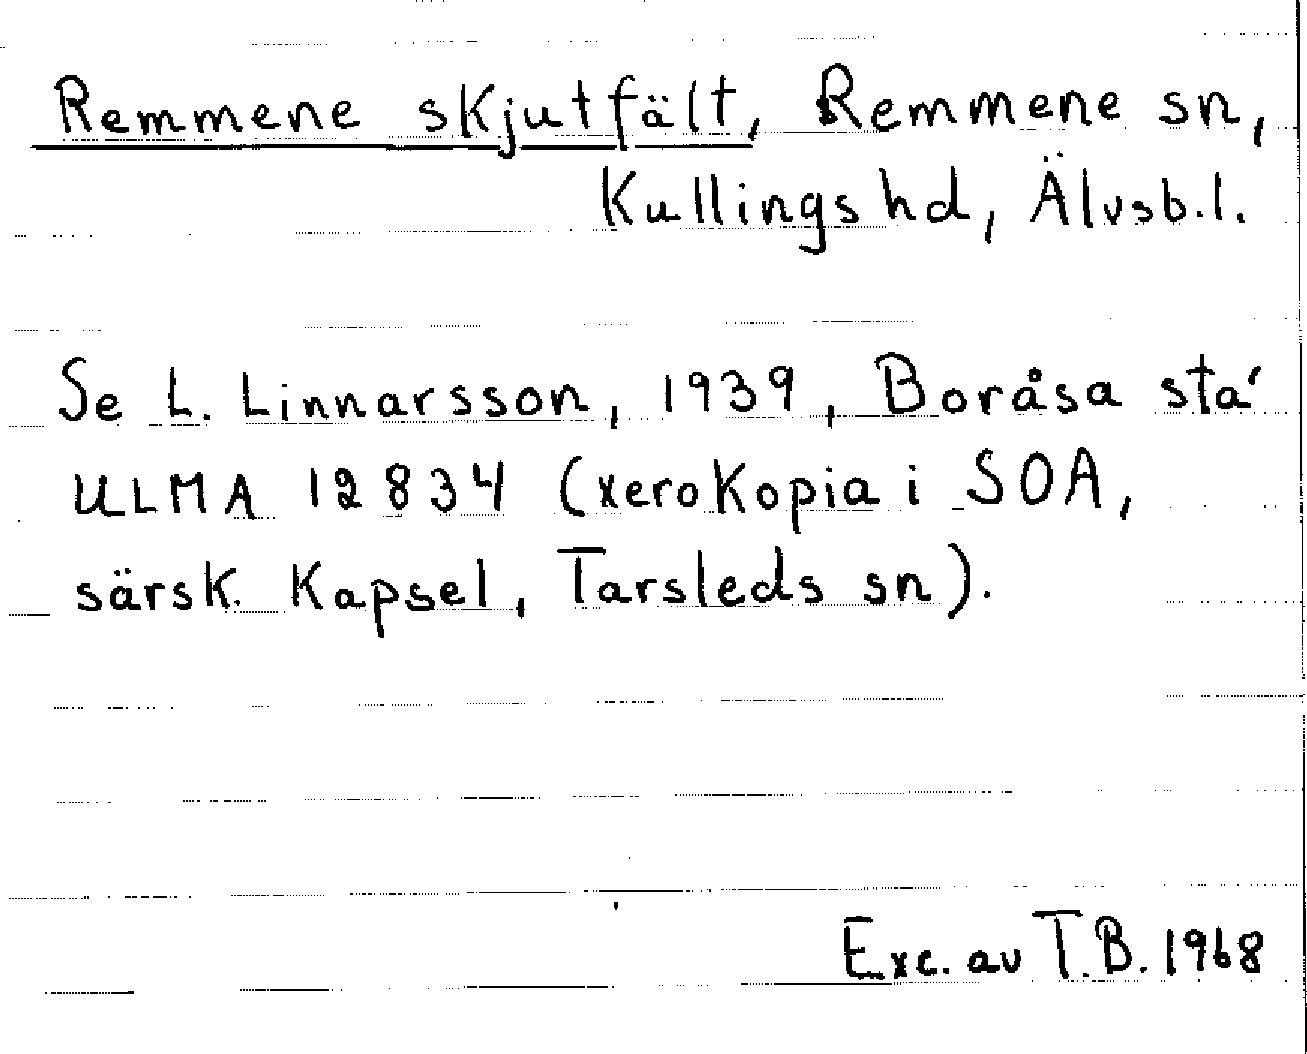 Remmene skjutfält, Remmene sn,
Kullings hd, Älvsb.l.
Se L. Linnarsson, 1939, Boråsa sta'
ULMA 12834 (xerokopia i SOA,
särsk. kapsel, Tarsleds sn).
Exc. av T.B. 1968